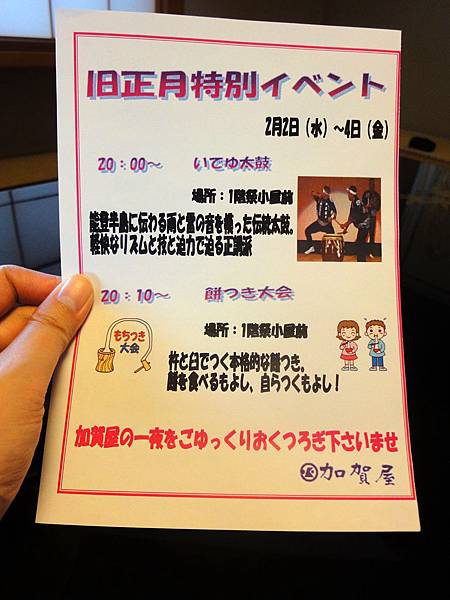 旧正月特別イベント
2月2日（水）～4日（金）
20：00～ いでゆ太鼓
場所：1階祭小屋前
能登半島に伝わる雨と雷の音を模った伝統太鼓。
軽快なリズムと技と迫力で迫る正調派
20：10～ 餅つき大会
場所：1階祭小屋前
もちつき
大会
杵と臼でつく本格的な餅つき。
餅を食べるもよし、自らつくもよし！
加賀屋の一夜をごゆっくりおくつろぎ下さいませ
加賀屋